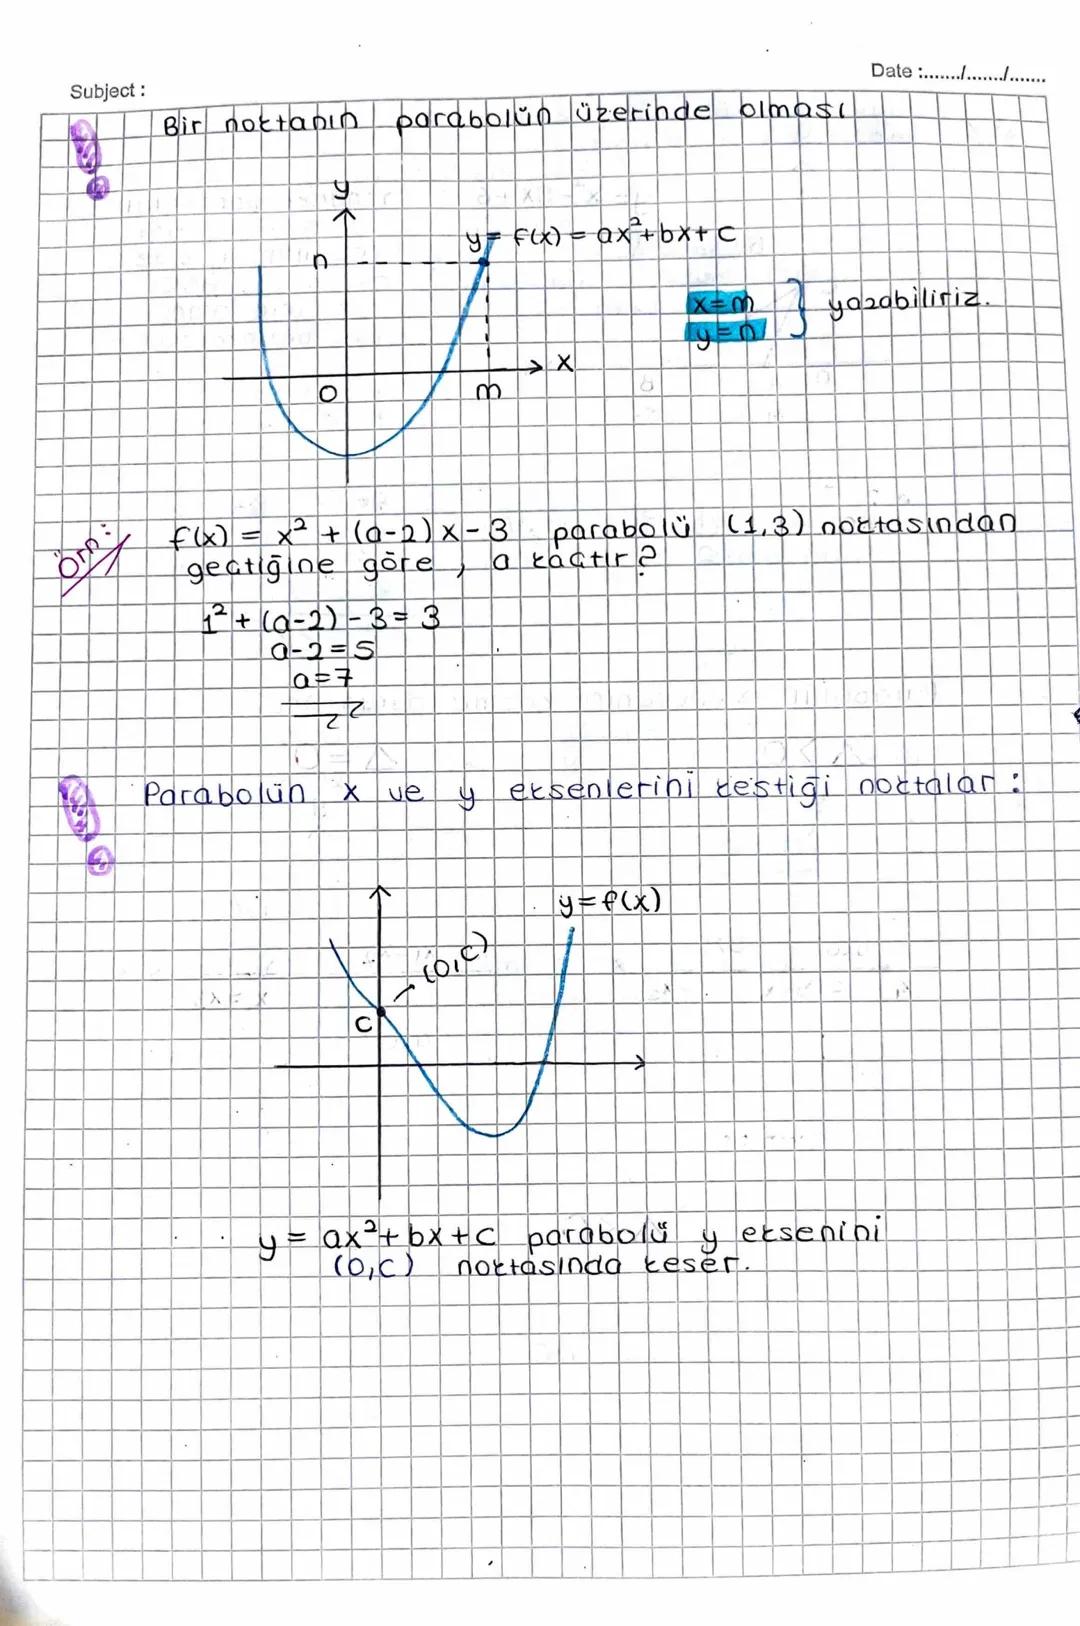 Date :......../......./.......
Subject :
Bir noktanın parabolün üzerinde olması
y
y = f(x) = ax²+bx+c
n
x=m
y=n } yazabiliriz.
x
0
m
Örn:
f(x) = x² + (a-2)x-3 parabolü (1,3) noktasından
geçtiğine göre, a kaçtır?
1² + (a-2) - 3 = 3
a-2=5
a=7
Parabolün x ve y eksenlerini kestiği noktalar :
y=f(x)
(0,c)
c
y = ax²+bx+c parabolü y eksenini
(0,c) noktasında keser.